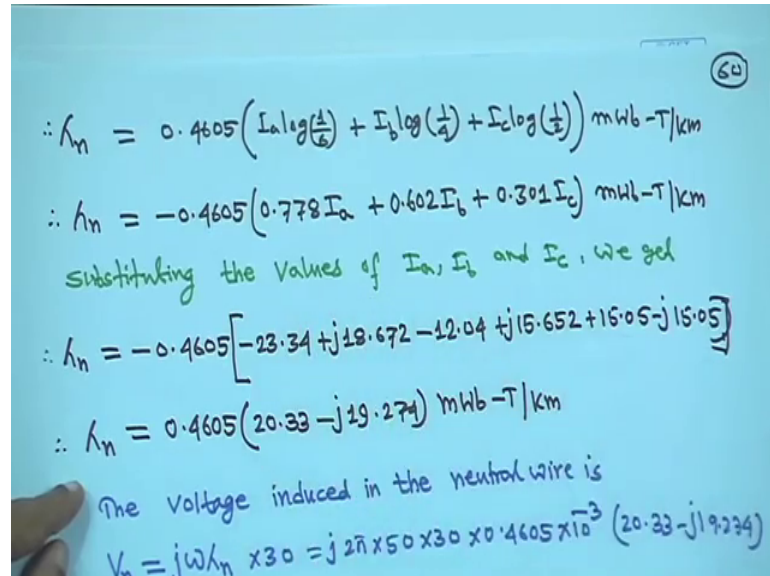 60
∴ λn = 0.4605(Ia log(1/6) + Ib log(1/4) + Ic log(1/2)) mWb-T/km
∴ λn = -0.4605(0.778Ia + 0.602Ib + 0.301Ic) mWb-T/km
substituting the values of Ia, Ib and Ic, we get
∴ λn = -0.4605[-23.34 + j18.672 - 12.04 + j15.652 + 15.05 - j15.05]
∴ λn = 0.4605(20.33 - j19.274) mWb-T/km
The voltage induced in the neutral wire is
Vn = jωλn × 30 = j2π × 50 × 30 × 0.4605 × 10⁻³ (20.33 - j19.234)